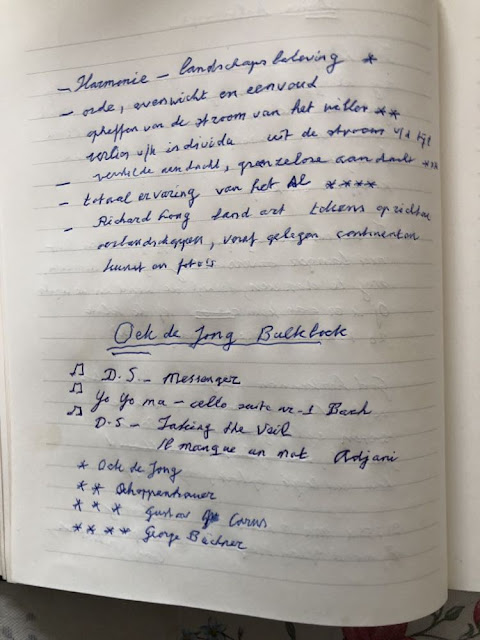 - Harmonie - landschapsbeleving *
- orde, evenwicht en eenvoud
opheffen van de stroom van het willen **
verlies v/h individu uit de stroom v/d tijd
- verstilde aandacht, grenzeloze aandacht ***
- totaal ervaring van het Al ****
- Richard Long land art tekens oprichten
oerlandschappen, veraf gelegen continenten
kunst en foto's
Oek de Jong Bulkboek
♫ D.S. - Messenger
♫ Yo Yo ma - cello suite nr-1 Bach
♫ D.S - Taking the Veil
Il manque un mot Adjani
* Oek de Jong
** Schoppenhauer
*** Gustav Carus
**** George Büchner